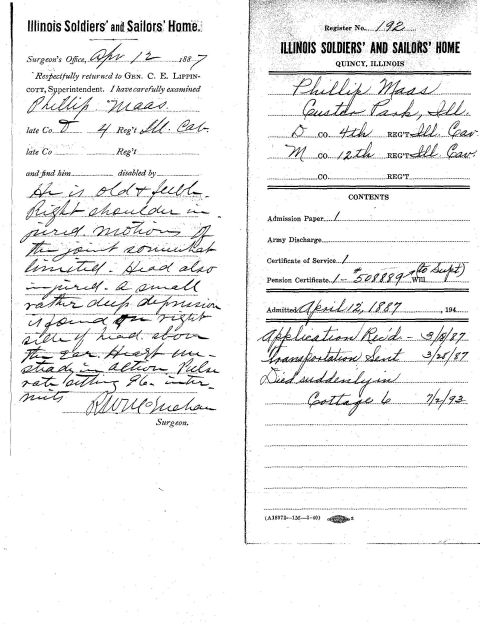 Illinois Soldiers' and Sailors' Home.
Surgeon's Office, Apr 12 1887
Respectfully returned to GEN. C. E. LIPPIN-
COTT, Superintendent. I have carefully examined
Phillip Maas
late Co. D 4 Reg't Ill. Cav.
late Co. Reg't
and find him disabled by
He is old & feeble
Right shoulder in-
jured motions of
the joint somewhat
limited. Head also
injured. A small
rather deep depression
is found on right
side of head above
the ear. Heart un-
steady in action. Pulse
rate sitting 96. inter-
mits
Surgeon.
Register No. 192
ILLINOIS SOLDIERS' AND SAILORS' HOME
QUINCY, ILLINOIS
Phillip Maas
Custer Park, Ill.
D CO. 4th REG'T Ill. Cav
M CO. 12th REG'T Ill. Cav
CO. REG'T
CONTENTS
Admission Paper 1
Army Discharge
Certificate of Service 1
Pension Certificate 1 - #508889 Will (to Supt)
Admitted April 12, 1887 , 194
Application Rec'd - 3/8/87
Transportation Sent 3/28/87
Died suddenly in
Cottage 6 7/2/93